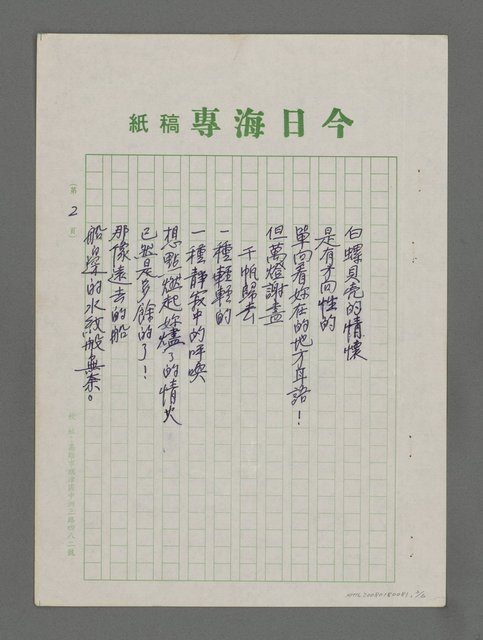 今日海專稿紙
白螺貝壳的情懷
是有方向性的
單向着妳在的地方耳語！
但萬燈謝盡
千帆歸去
一種輕輕的
一種靜寂中的呼喚
想點燃起妳燼了的情火
已經是多餘的了！
那像遠去的船
船邊的水紋般無奈。
(第2頁)
校址：高雄市旗津區中洲三路四八二號